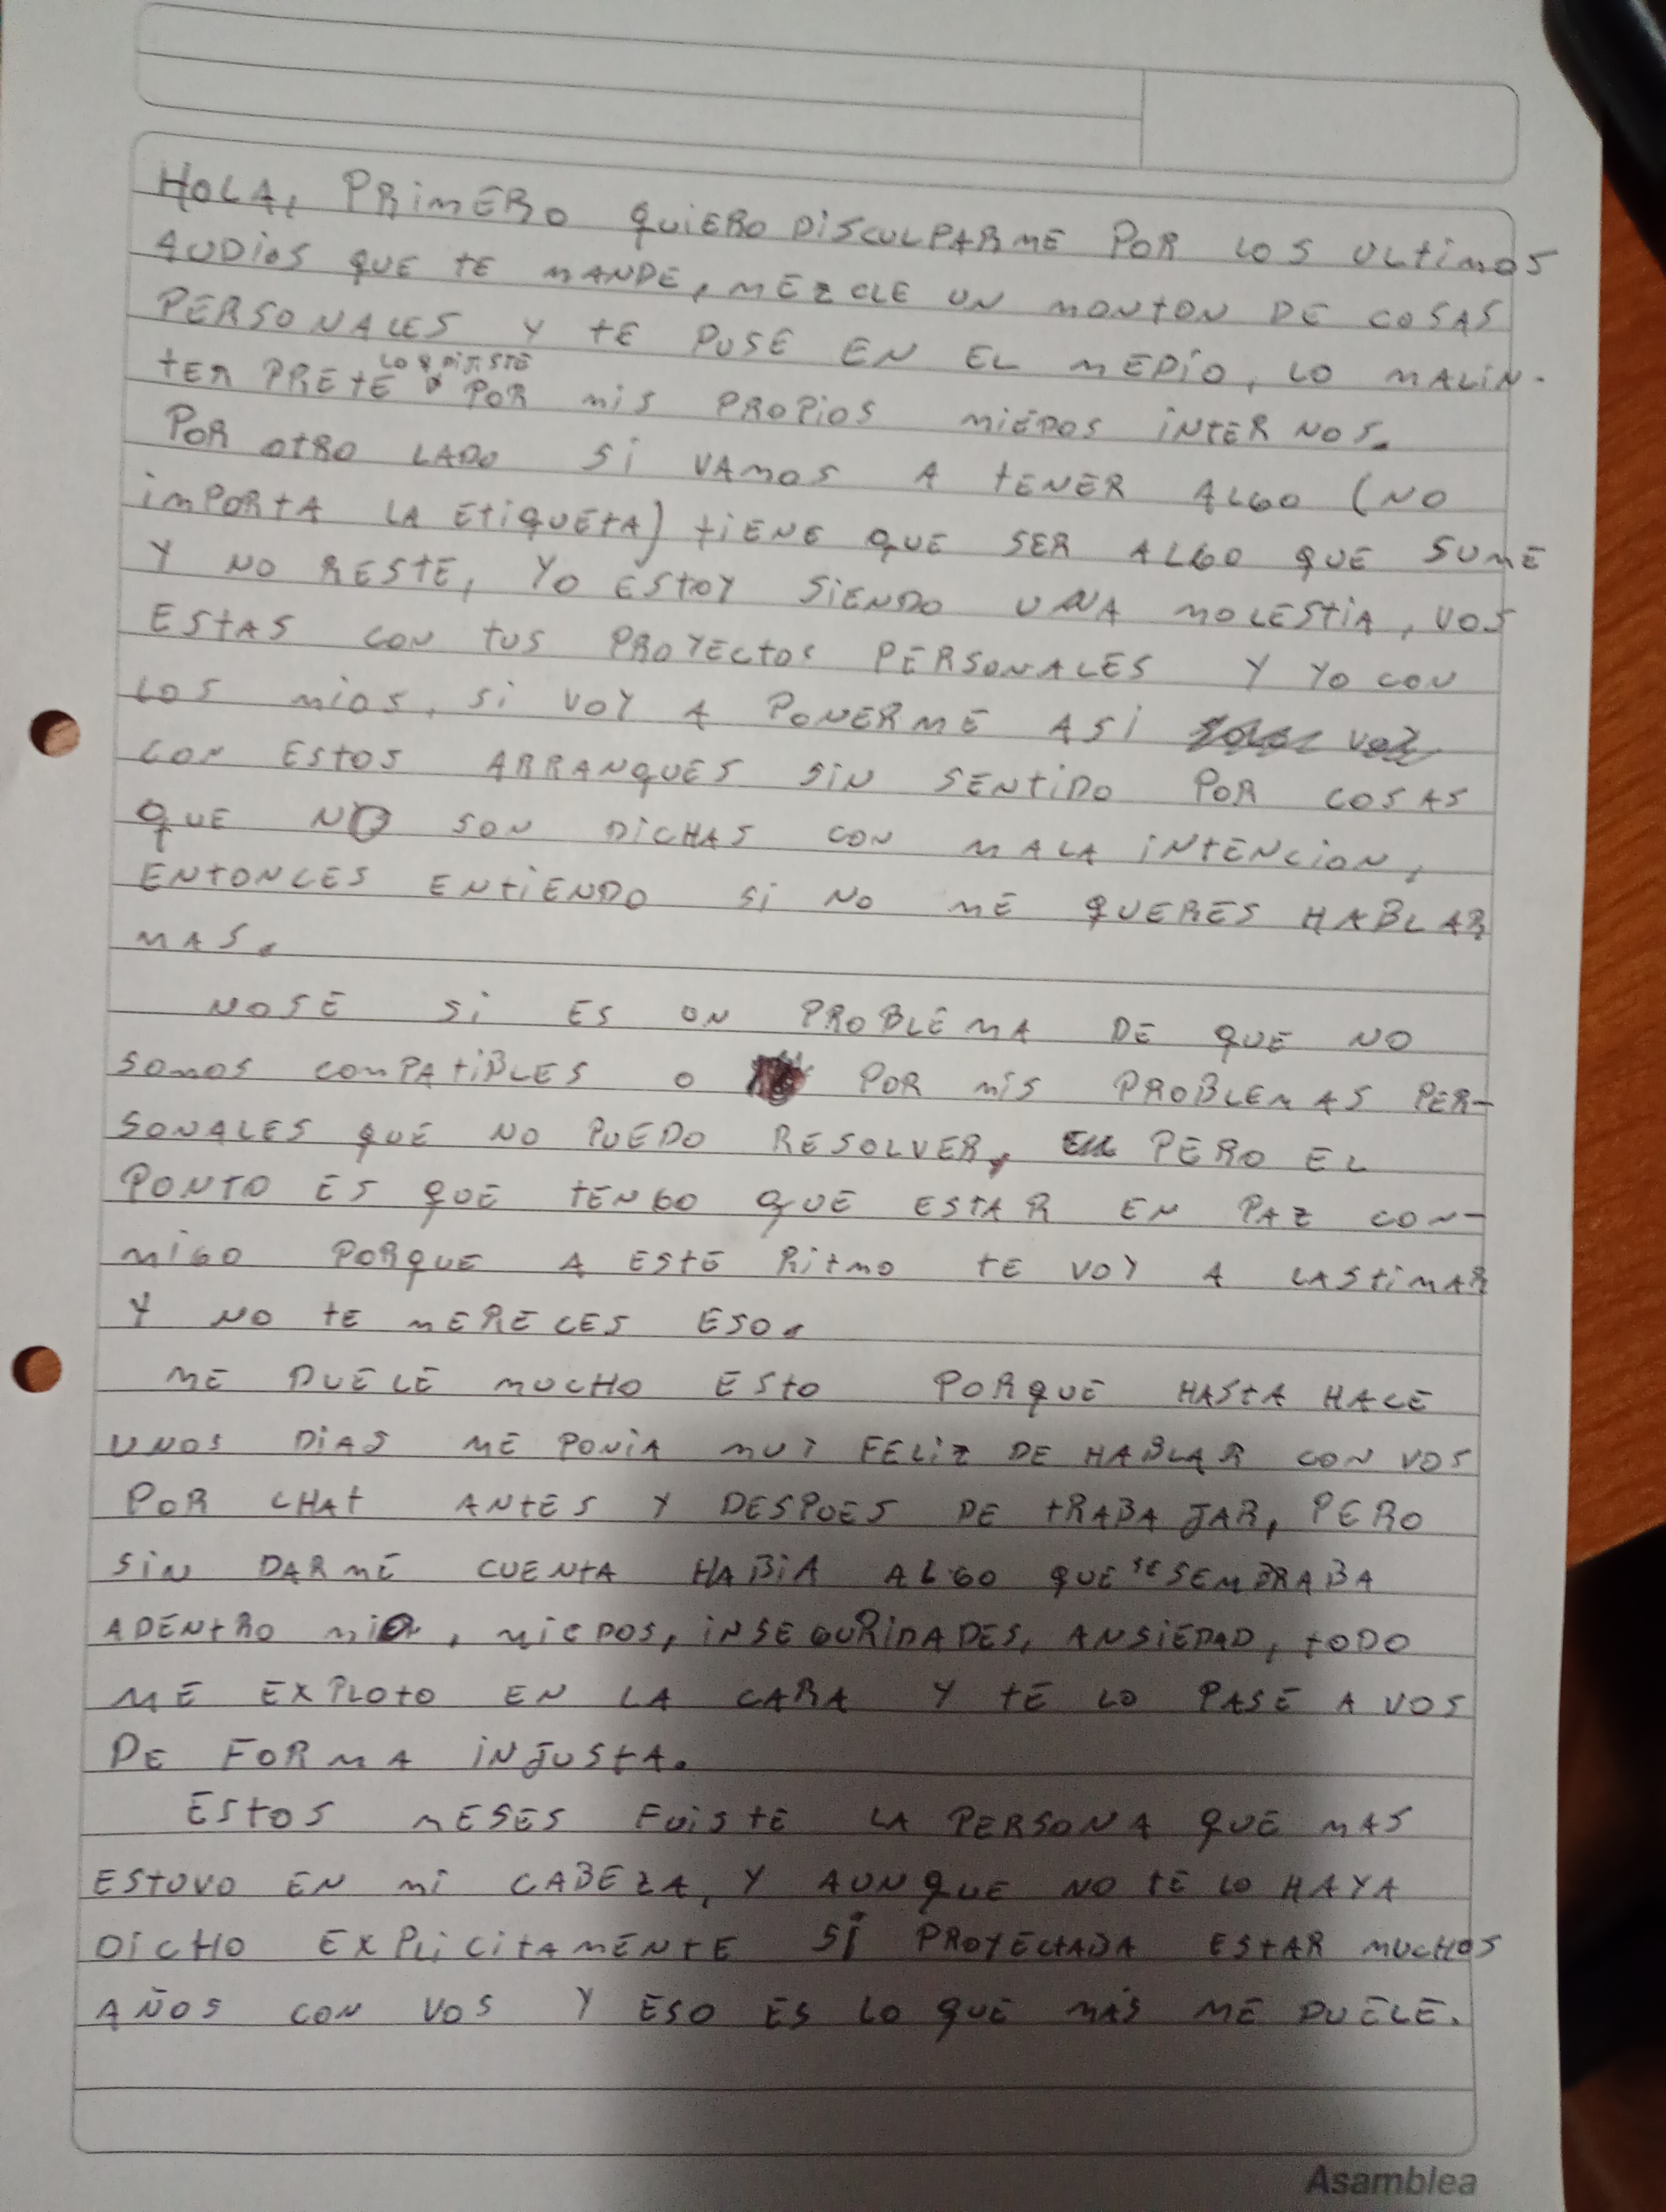 HOLA, PRIMERO QUIERO DISCULPARME POR LOS ULTIMOS
AUDIOS QUE TE MANDE, MEZCLE UN MONTON DE COSAS
PERSONALES Y TE PUSE EN EL MEDIO, LO MALIN-
LO Q DIJISTE
TERPRETE POR MIS PROPIOS MIEDOS INTERNOS.
POR OTRO LADO SI VAMOS A TENER ALGO (NO
IMPORTA LA ETIQUETA) TIENE QUE SER ALGO QUE SUME
Y NO RESTE, YO ESTOY SIENDO UNA MOLESTIA, VOS
ESTAS CON TUS PROYECTOS PERSONALES Y YO CON
LOS MIOS, SI VOY A PONERME ASI
CON ESTOS ARRANQUES SIN SENTIDO POR COSAS
QUE NO SON DICHAS CON MALA INTENCION,
ENTONCES ENTIENDO SI NO ME QUERES HABLAR
MAS.
NOSE SI ES UN PROBLEMA DE QUE NO
SOMOS COMPATIBLES O POR MIS PROBLEMAS PER-
SONALES QUE NO PUEDO RESOLVER, PERO EL
PUNTO ES QUE TENGO QUE ESTAR EN PAZ CON-
MIGO PORQUE A ESTE RITMO TE VOY A LASTIMAR
Y NO TE MERECES ESO.
ME DUELE MUCHO ESTO PORQUE HASTA HACE
UNOS DIAS ME PONIA MUY FELIZ DE HABLAR CON VOS
POR CHAT ANTES Y DESPUES DE TRABAJAR, PERO
SIN DARME CUENTA HABIA ALGO QUE SE SEMBRABA
ADENTRO MIO, MIEDOS, INSEGURIDADES, ANSIEDAD, TODO
ME EXPLOTO EN LA CARA Y TE LO PASE A VOS
DE FORMA INJUSTA.
ESTOS MESES FUISTE LA PERSONA QUE MAS
ESTUVO EN MI CABEZA, Y AUNQUE NO TE LO HAYA
DICHO EXPLICITAMENTE SÍ PROYECTABA ESTAR MUCHOS
AÑOS CON VOS Y ESO ES LO QUE MÁS ME DUELE.
Asamblea